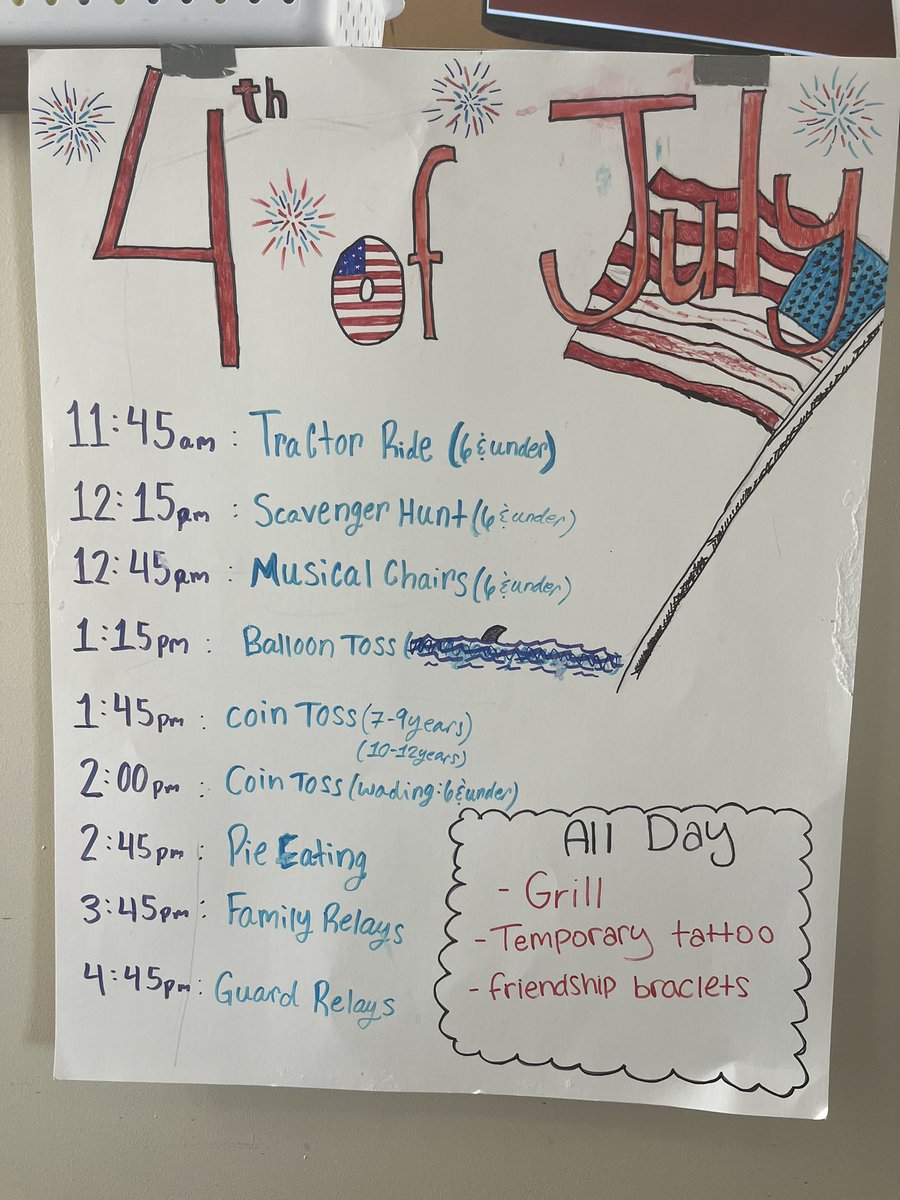 4th of July
11:45am : Tractor Ride (6 & under)
12:15pm : Scavenger Hunt (6 & under)
12:45pm : Musical Chairs (6 & under)
1:15pm : Balloon Toss (
1:45pm : Coin Toss (7-9years)
(10-12years)
2:00pm : Coin Toss (wading: 6 & under)
2:45pm : Pie Eating
3:45pm : Family Relays
4:45pm : Guard Relays
All Day
- Grill
- Temporary tattoo
- friendship braclets